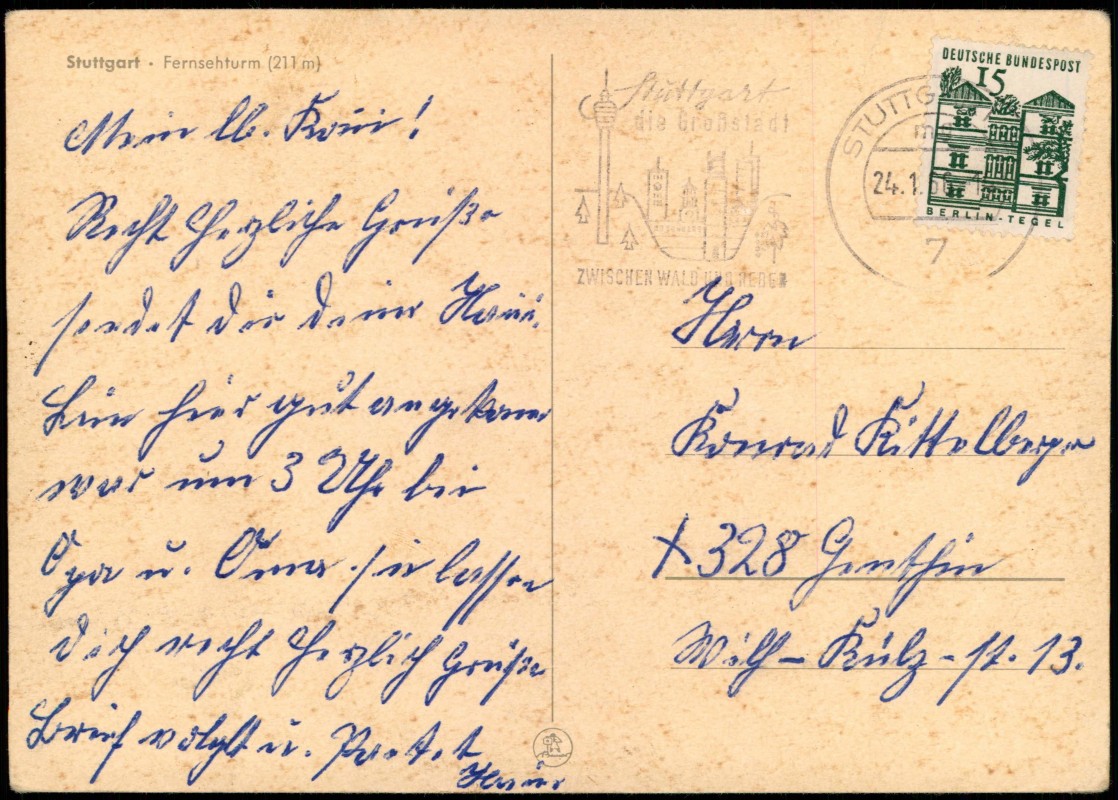 Stuttgart · Fernsehturm (211 m)
Mein lb. Koni!
Recht herzliche Grüße
sendet dir deine
Bin hier gut angekomm
war um 3 Uhr bei
Opa u. Oma. sie lassen
dich recht herzlich Grüße
Brief volgt u.
Stuttgart
die Großstadt
ZWISCHEN WALD UND REBEN
STUTTG
24.1.
7
DEUTSCHE BUNDESPOST
15
BERLIN-TEGEL
Herrn
Konrad Kittelberger
X 328 Genthin
Wilh-Külz-st. 13.